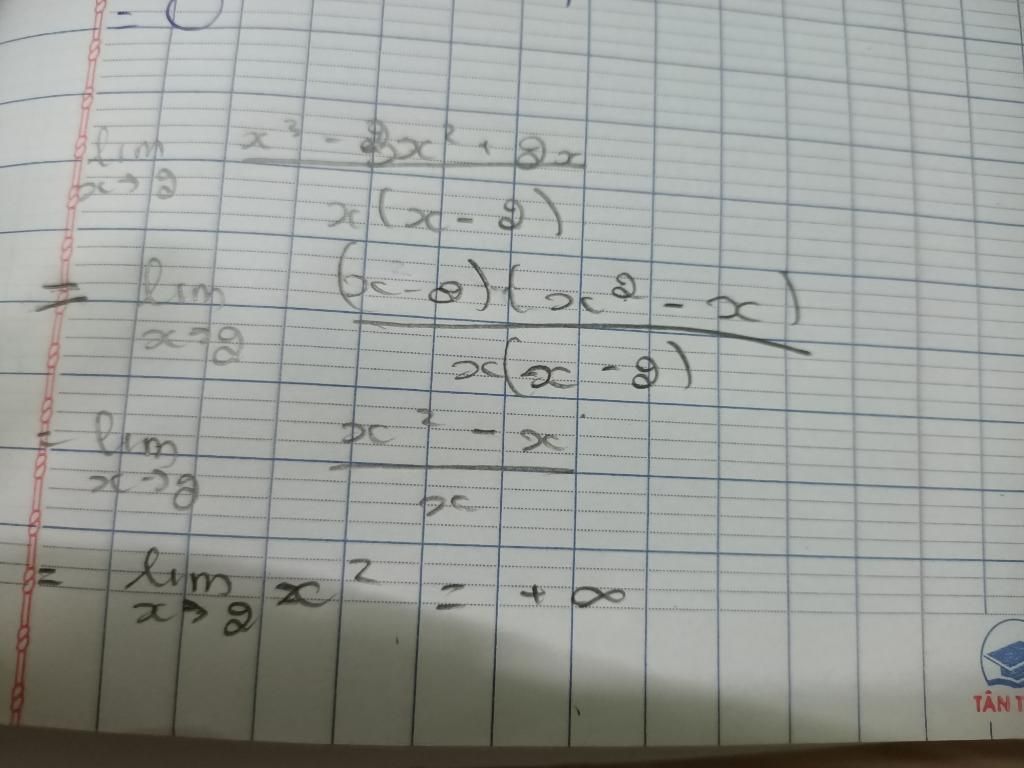 = 0
lim x→2 (x³ - 3x² + 2x) / (x(x - 2))
= lim x→2 ((x - 2)(x² - x)) / (x(x - 2))
= lim x→2 (x² - x) / x
= lim x→2 x² = + ∞
TÂN T